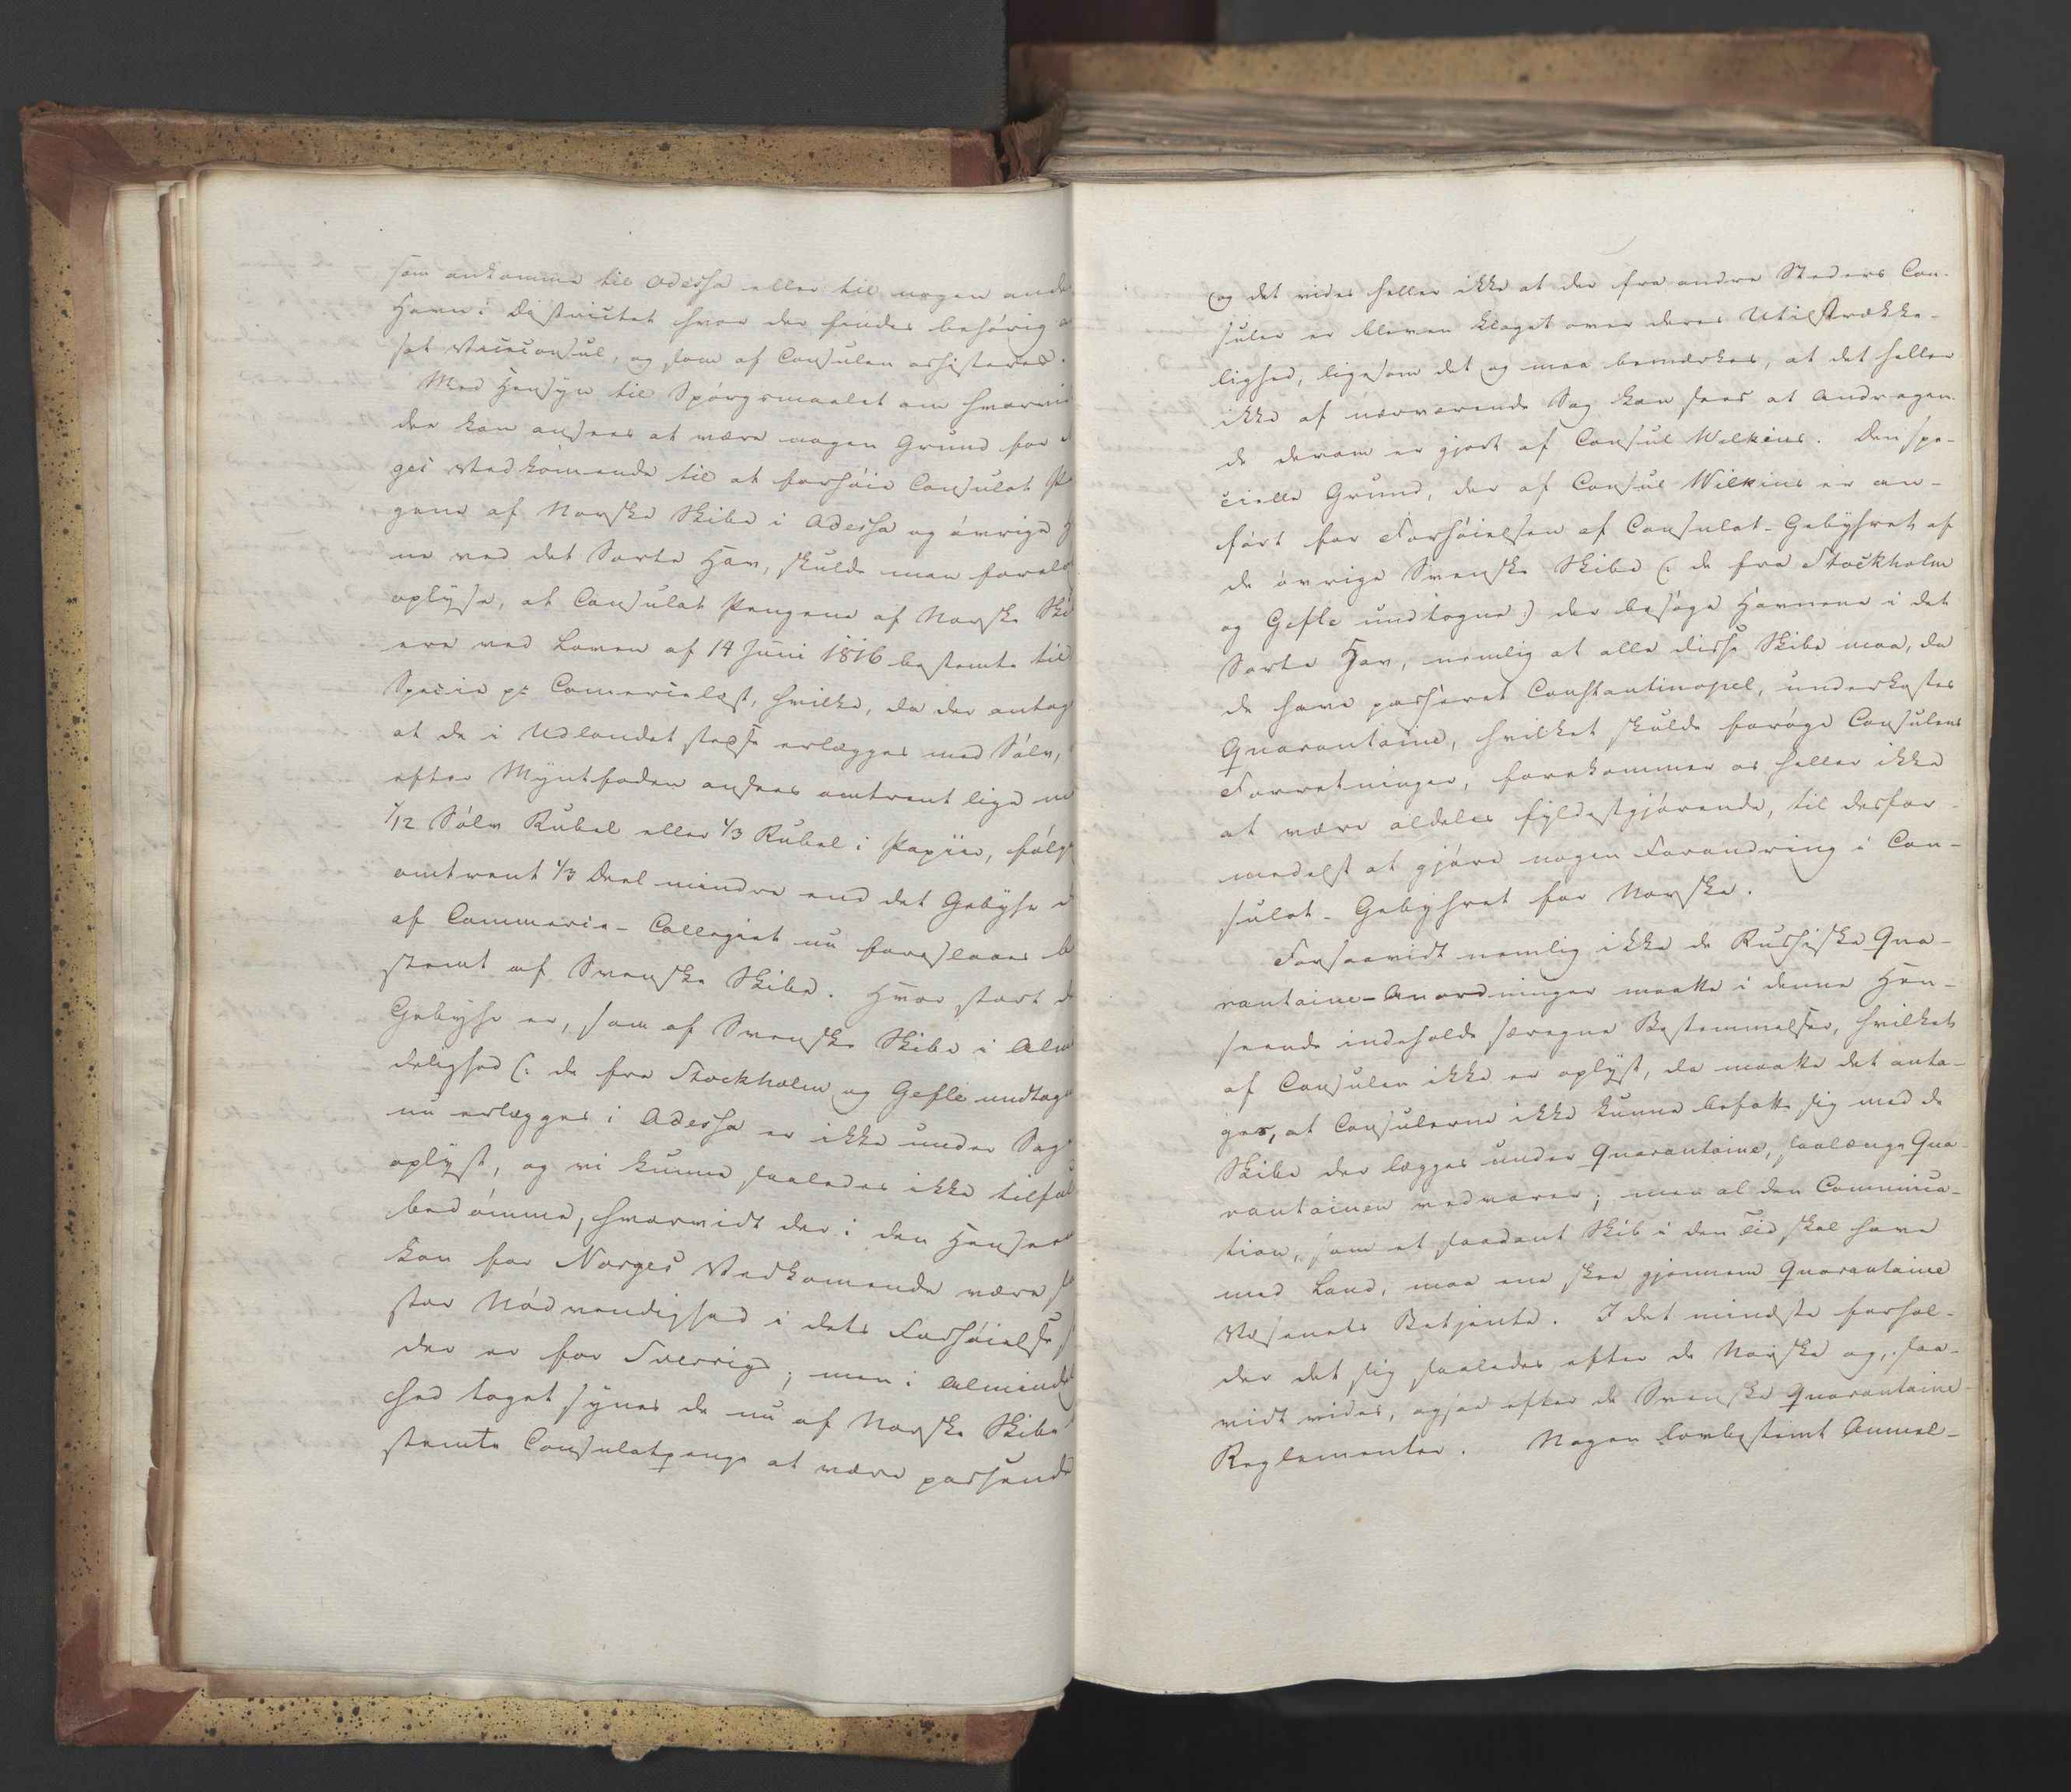 som ankomme til Odessa eller til nogen ande
Havn i Districtet hvor der findes behørig a
sat Viceconsul, og som af Consulen assisteres.
Med Hensyn til Spörgsmaalet om hvorvi
der kan ansees at være nogen Grund for
ges Vedkommende til at forhöie Consulat P
gene af Norske Skibe i Odessa og övrige H
ne ved det Sorte Hav, skulde man forelö
oplyse, at Consulat Pengene af Norske Ski
ere ved Loven af 14 Juni 1816 bestemte til
Specie pr Comercelæst, hvilke, da der antag
at de i Udlandet stedse erlægges med Sölv,
efter Myntfoden ansees omtrent lige m
1/12 Sölv Rubel eller 1/3 Rubel i Papiir, fölg
omtrent 1/3 Deel mindre end det Gebyhr
af Commerce-Collegiet nu foreslaaes b
stemt af Svenske Skibe. Hvor stort d
Gebyhr er, som af Svenske Skibe i Almi
delighed (: de fra Stockholm og Gefle undtag
nu erlægges i Odessa er ikke under Sag
oplyst, og vi kunne saaledes ikke tilful
bedömme, hvorvidt der i den Hensee
kan for Norges Vedkommende være sa
stor Nödvendighed i dets Forhöielse s
der er for Sverrig; men i Almindel
hed taget synes de nu af Norske Skibe
stemte Consulatpenge at være passende
og det vides heller ikke at der fra andre Steders Con-
suler er bleven klaget over deres Utilstrække-
lighed, ligesom det og maa bemærkes, at det heller
ikke af nærværende Sag kan sees at Andragen-
de derom er gjort af Consul Wilkins. Den spe-
cielle Grund, der af Consul Wilkins er an-
fört for Forhöielsen af Consulat-Gebyhret af
de övrige Svenske Skibe (: de fra Stockholm
og Gefle undtagne :) der besöge Havnene i det
Sorte Hav, nemlig at alle disse Skibe maa, da
de have passeret Constantinopel, underkastes
Quarantaine, hvilket skulde foröge Consulens
Forretninger, forekommer os heller ikke
at være aldeles fyldestgjörende, til desfor-
medelst at gjöre nogen Forandring i Con-
sulat-Gebyhret for Norske.
Forsaavidt nemlig ikke de Russiske Qua-
rantaine-Anordninger maatte i denne Hen-
seende indeholde særegne Bestemmelser, hvilket
af Consulen ikke er oplyst, da maatte det anta-
ges, at Consulerne ikke kunne befatte sig med de
Skibe der lægges under Quarantaine, saalænge Qua-
rantainen vedvarer; men al den Communica-
tion, som et saadant Skib i den Tid skal have
med Land, maa ene skee gjennem Quarantaine
Væsenets Betjente. I det mindste forhol-
der det sig saaledes efter de Norske og, saa-
vidt vides, ogsaa efter de Svenske Quarantaine-
Reglementer. Nogen lovbestemt Anmel-